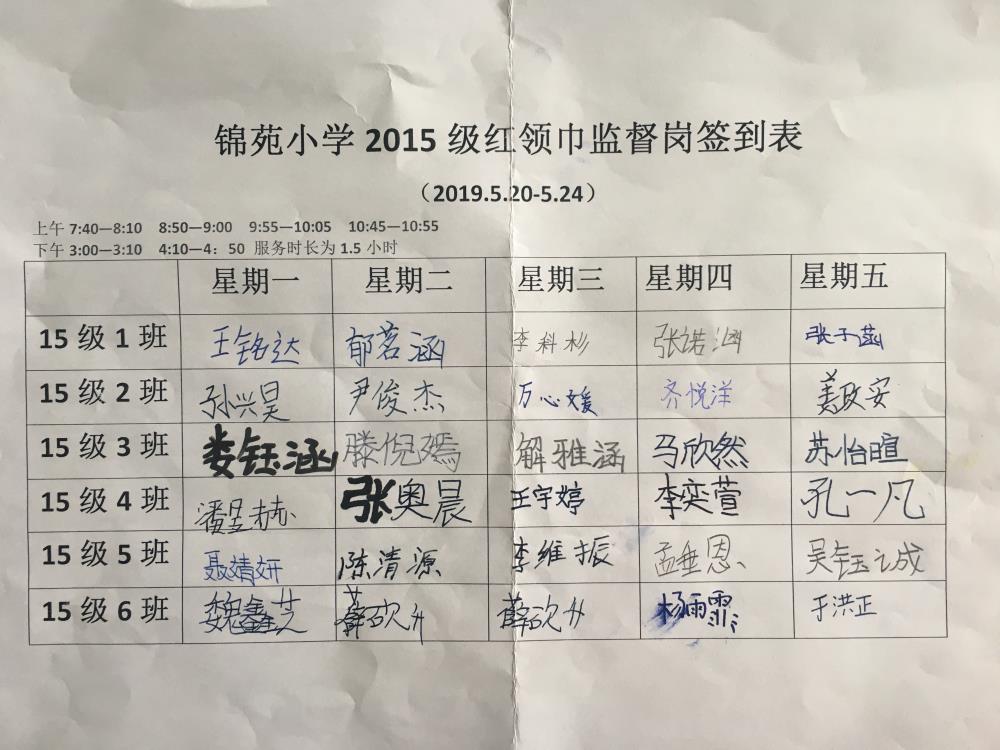 锦苑小学 2015 级红领巾监督岗签到表
（2019.5.20-5.24）
上午 7:40—8:10 8:50—9:00 9:55—10:05 10:45—10:55
下午 3:00—3:10 4:10—4：50 服务时长为 1.5 小时
星期一 星期二 星期三 星期四 星期五
15 级 1 班 王铭达 郁茗涵 李科杉 张诺涵 张子菡
15 级 2 班 孙兴昊 尹俊杰 万心媛 齐悦洋 姜政安
15 级 3 班 娄钰涵 滕倪嫣 解雅涵 马欣然 苏怡暄
15 级 4 班 潘昱赫 张奥晨 王宇婷 李奕萱 孔一凡
15 级 5 班 聂婧妍 陈清源 李维振 孟垂恩 吴钰成
15 级 6 班 魏鑫芝 薛砍升 薛砍升 杨雨霏 于洪正